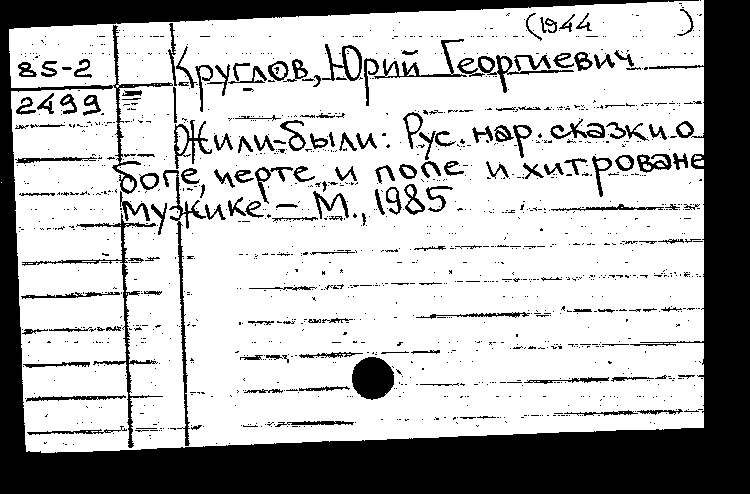 (1944 )
85-2
Круглов, Юрий Георгиевич
2499
Жили-были: Рус. нар. сказки о
боге, черте, и попе и хитрованe
мужике. – М., 1985